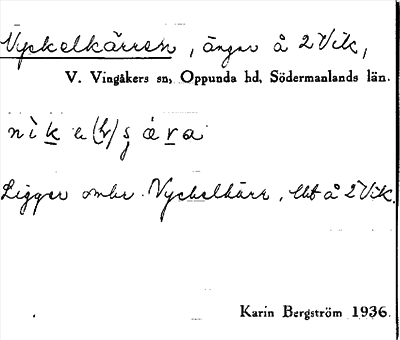 Nyckelkärren, ängar å 2 Vik,
V. Vingåkers sn, Oppunda hd, Södermanlands län.
Ligger omkr. Nyckelkärr, å 2 Vik.
Karin Bergström 1936.